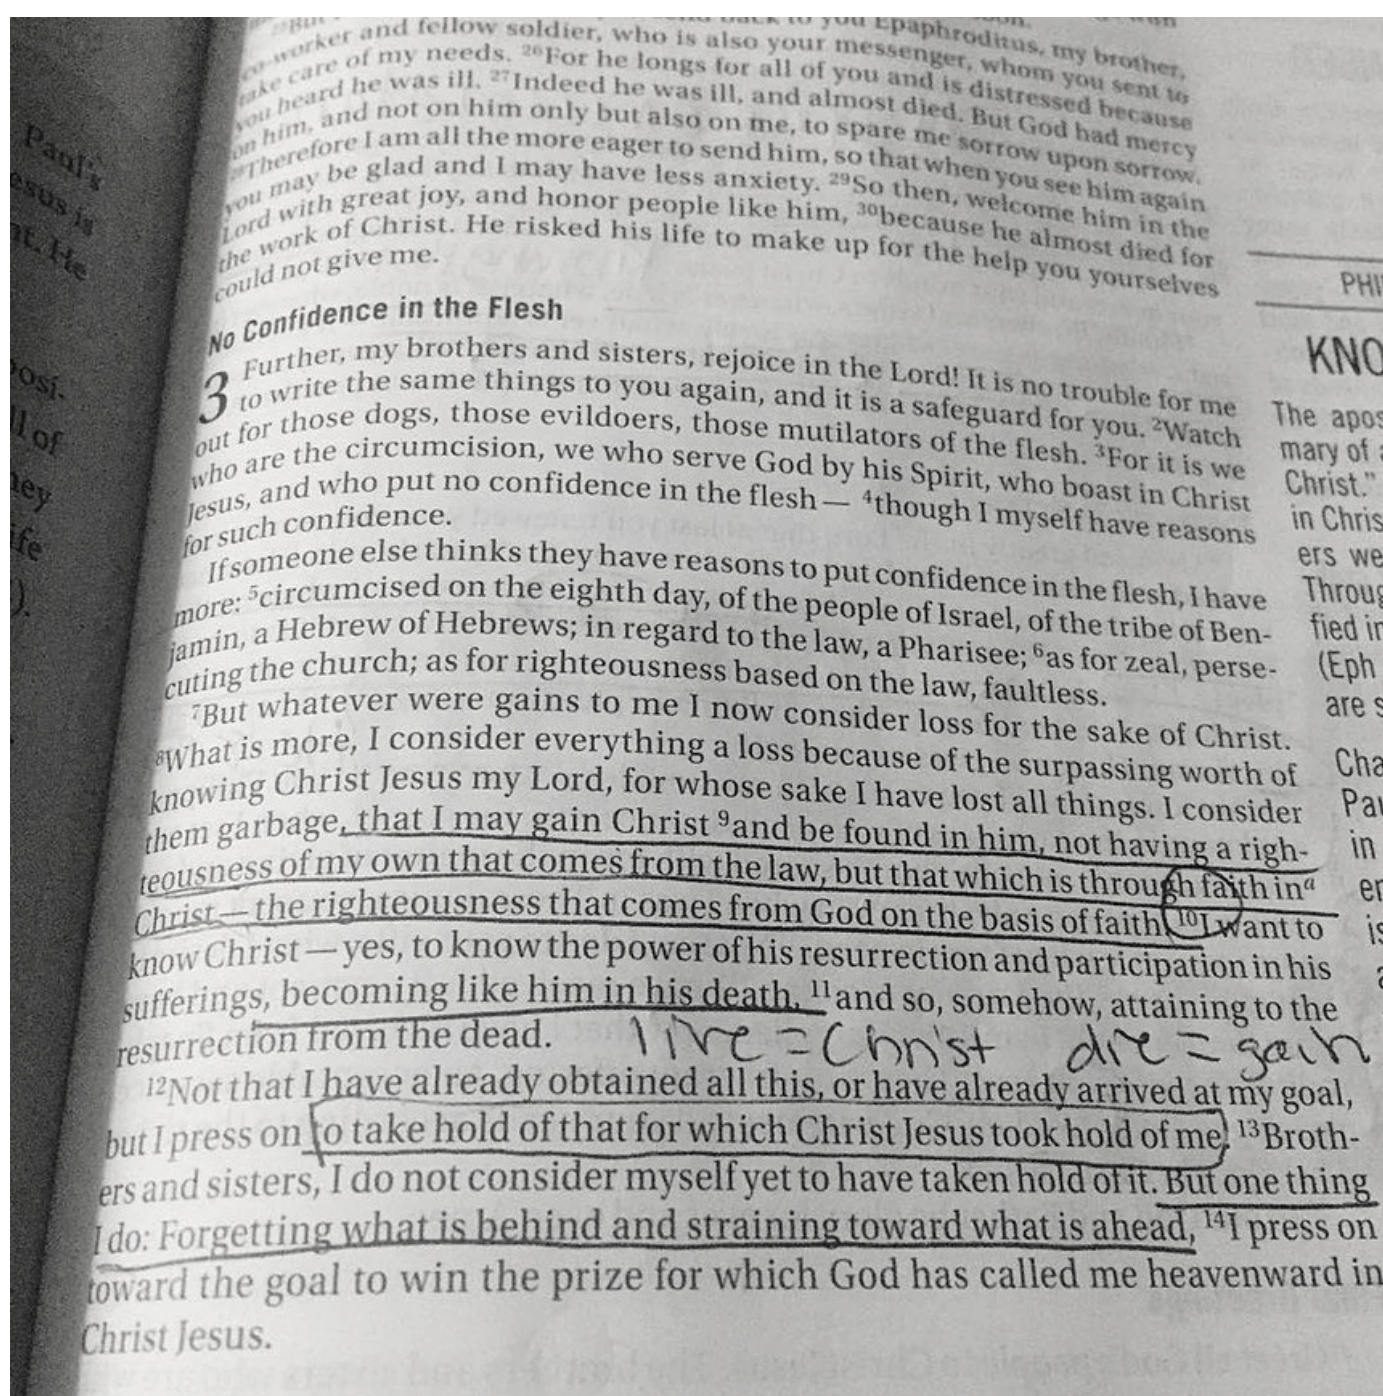 Paul's
esus is
nt. He
osi-
ll of
ney
ife
).
back to you Epaphroditus, my brother,
co-worker and fellow soldier, who is also your messenger, whom you sent to
take care of my needs. ²⁶For he longs for all of you and is distressed because
you heard he was ill. ²⁷Indeed he was ill, and almost died. But God had mercy
on him, and not on him only but also on me, to spare me sorrow upon sorrow.
²⁸Therefore I am all the more eager to send him, so that when you see him again
you may be glad and I may have less anxiety. ²⁹So then, welcome him in the
Lord with great joy, and honor people like him, ³⁰because he almost died for
the work of Christ. He risked his life to make up for the help you yourselves
could not give me.
No Confidence in the Flesh
3 Further, my brothers and sisters, rejoice in the Lord! It is no trouble for me
to write the same things to you again, and it is a safeguard for you. ²Watch
out for those dogs, those evildoers, those mutilators of the flesh. ³For it is we
who are the circumcision, we who serve God by his Spirit, who boast in Christ
Jesus, and who put no confidence in the flesh — ⁴though I myself have reasons
for such confidence.
If someone else thinks they have reasons to put confidence in the flesh, I have
more: ⁵circumcised on the eighth day, of the people of Israel, of the tribe of Ben-
jamin, a Hebrew of Hebrews; in regard to the law, a Pharisee; ⁶as for zeal, perse-
cuting the church; as for righteousness based on the law, faultless.
⁷But whatever were gains to me I now consider loss for the sake of Christ.
⁸What is more, I consider everything a loss because of the surpassing worth of
knowing Christ Jesus my Lord, for whose sake I have lost all things. I consider
them garbage, that I may gain Christ ⁹and be found in him, not having a righ-
teousness of my own that comes from the law, but that which is through faith inᵃ
Christ — the righteousness that comes from God on the basis of faith. ¹⁰I want to
know Christ — yes, to know the power of his resurrection and participation in his
sufferings, becoming like him in his death, ¹¹and so, somehow, attaining to the
resurrection from the dead. live = Christ die = gain
¹²Not that I have already obtained all this, or have already arrived at my goal,
but I press on to take hold of that for which Christ Jesus took hold of me. ¹³Broth-
ers and sisters, I do not consider myself yet to have taken hold of it. But one thing
I do: Forgetting what is behind and straining toward what is ahead, ¹⁴I press on
toward the goal to win the prize for which God has called me heavenward in
Christ Jesus.
PHI
KNO
The apos
mary of
Christ."
in Chris
ers we
Throug
fied in
(Eph
are s
Cha
Pau
in
er
is